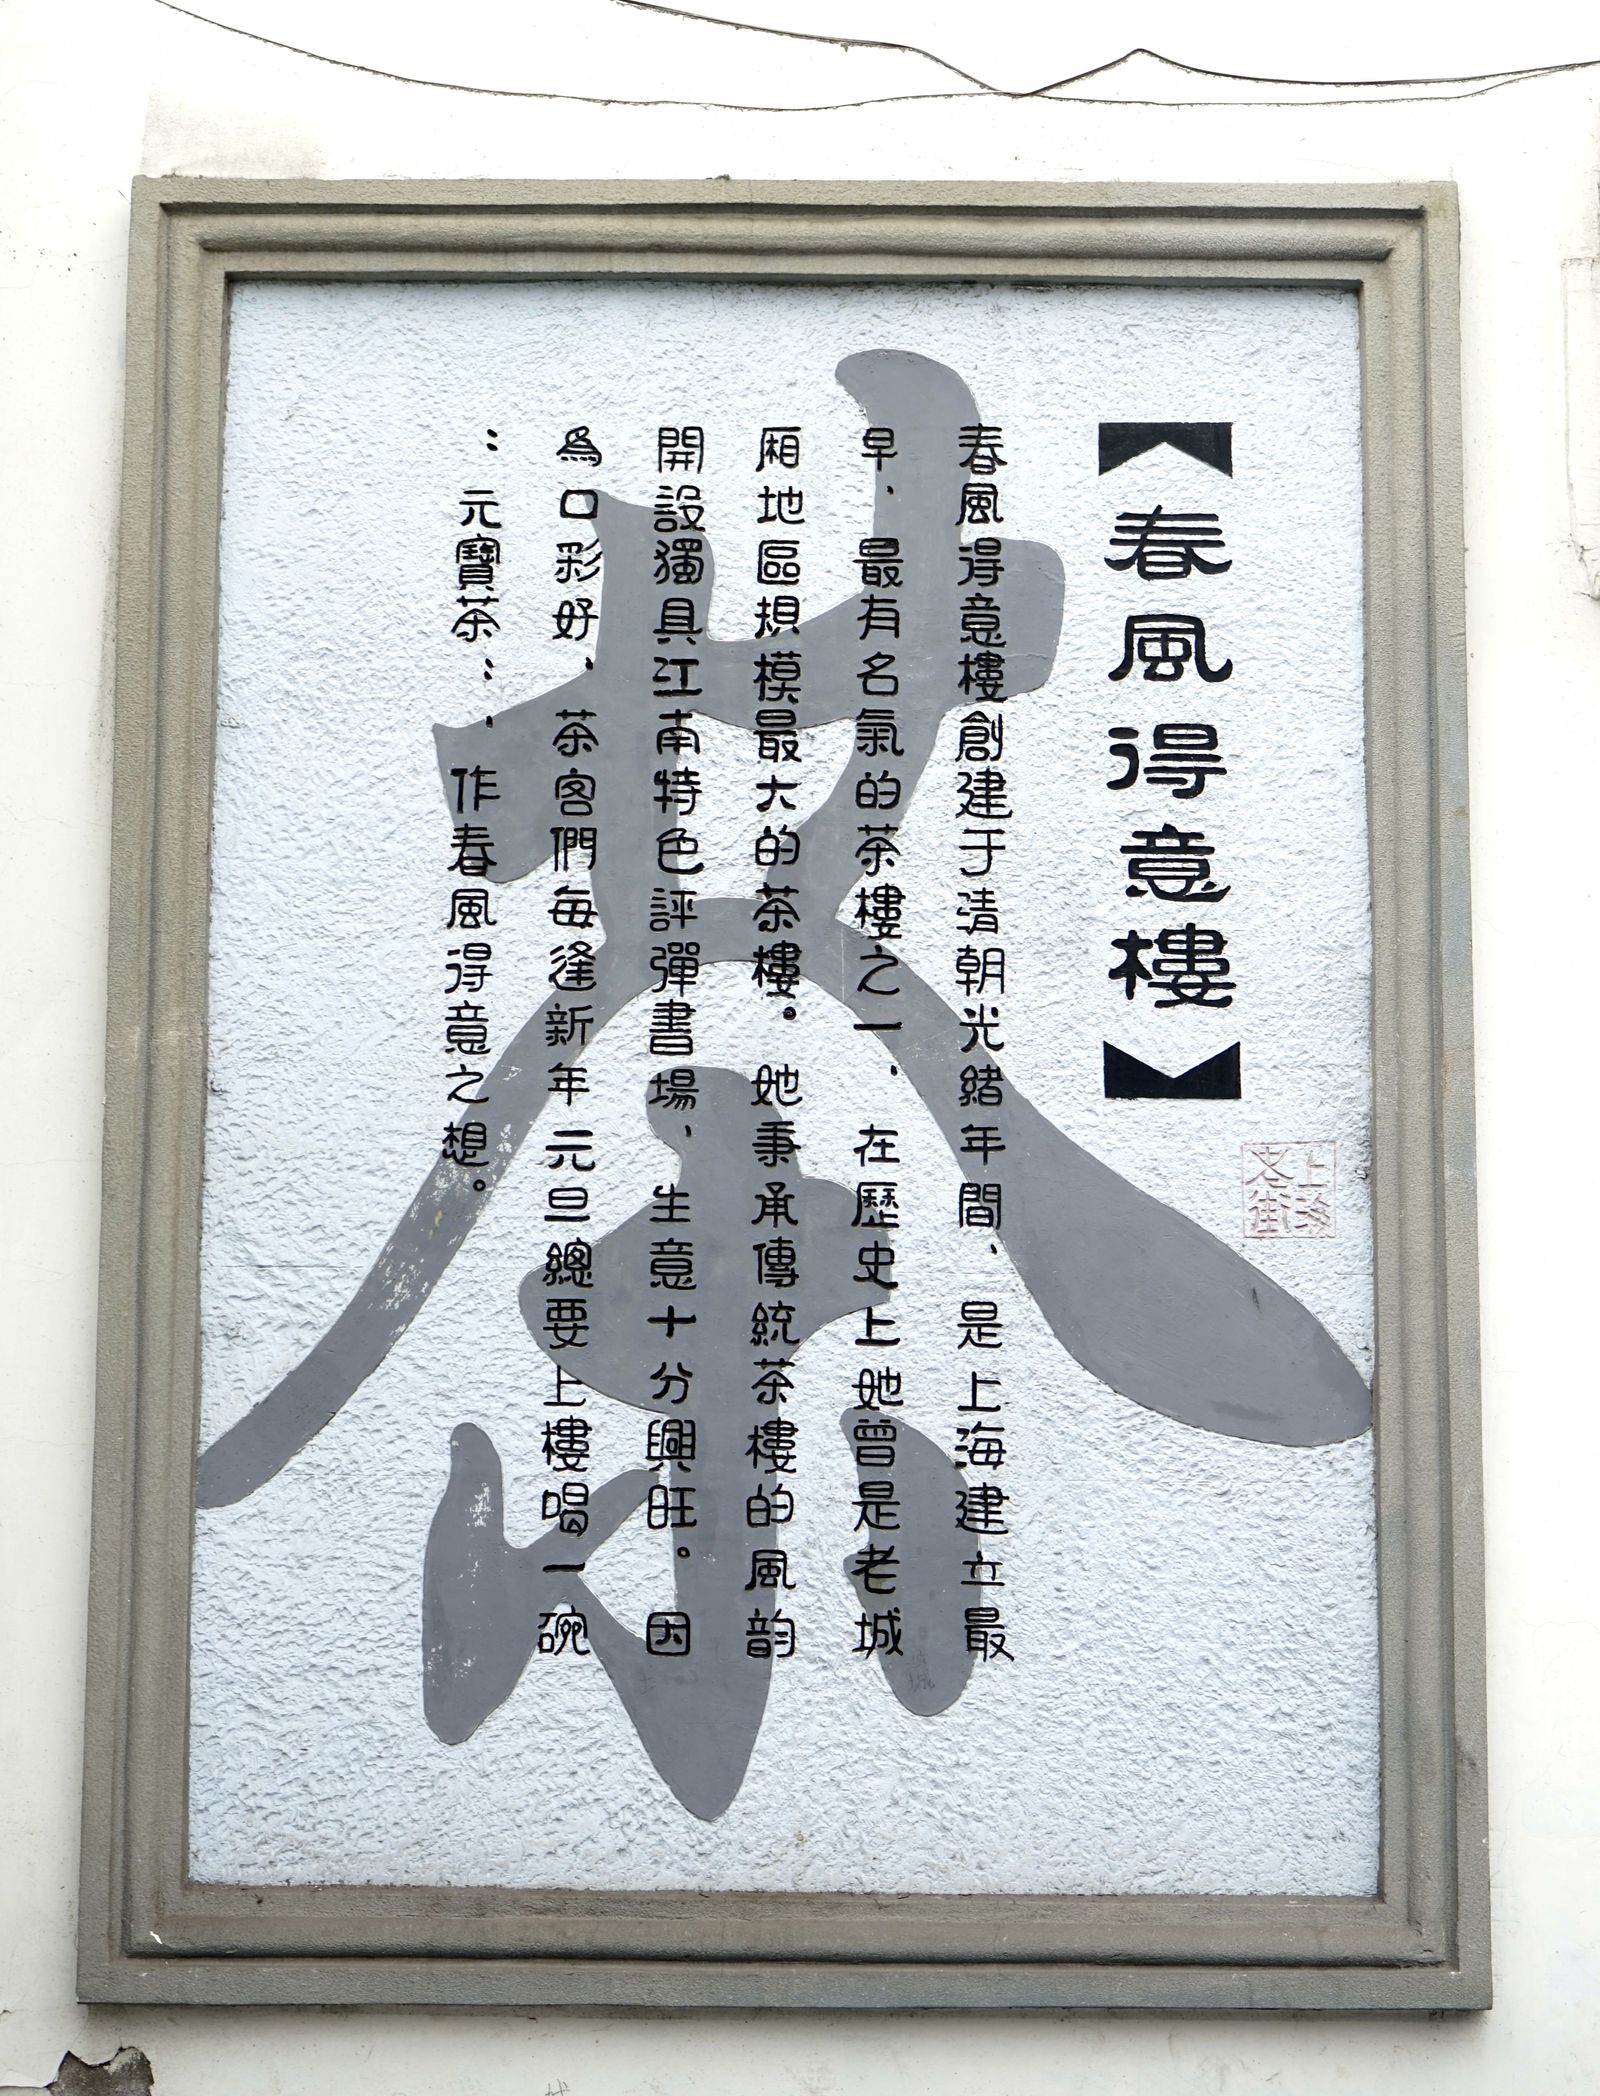 【春風得意樓】
春風得意樓創建于清朝光緒年間、是上海建立最
早、最有名氣的茶樓之一、在歷史上她曾是老城
厢地區規模最大的茶樓。她秉承傳統茶樓的風韵
開設獨具江南特色評彈書場、生意十分興旺。因
為口彩好、茶客們每逢新年元旦總要上樓喝一碗
：元寶茶：、作春風得意之想。
上海
老街
茶